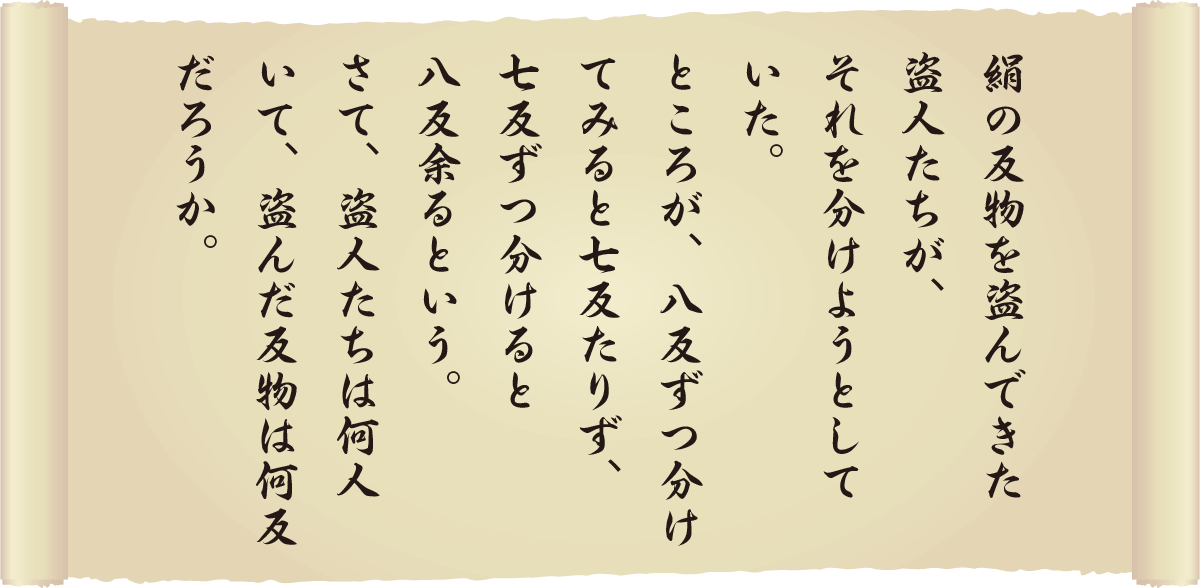 絹の反物を盗んできた
盗人たちが、
それを分けようとして
いた。
ところが、八反ずつ分け
てみると七反たりず、
七反ずつ分けると
八反余るという。
さて、盗人たちは何人
いて、盗んだ反物は何反
だろうか。